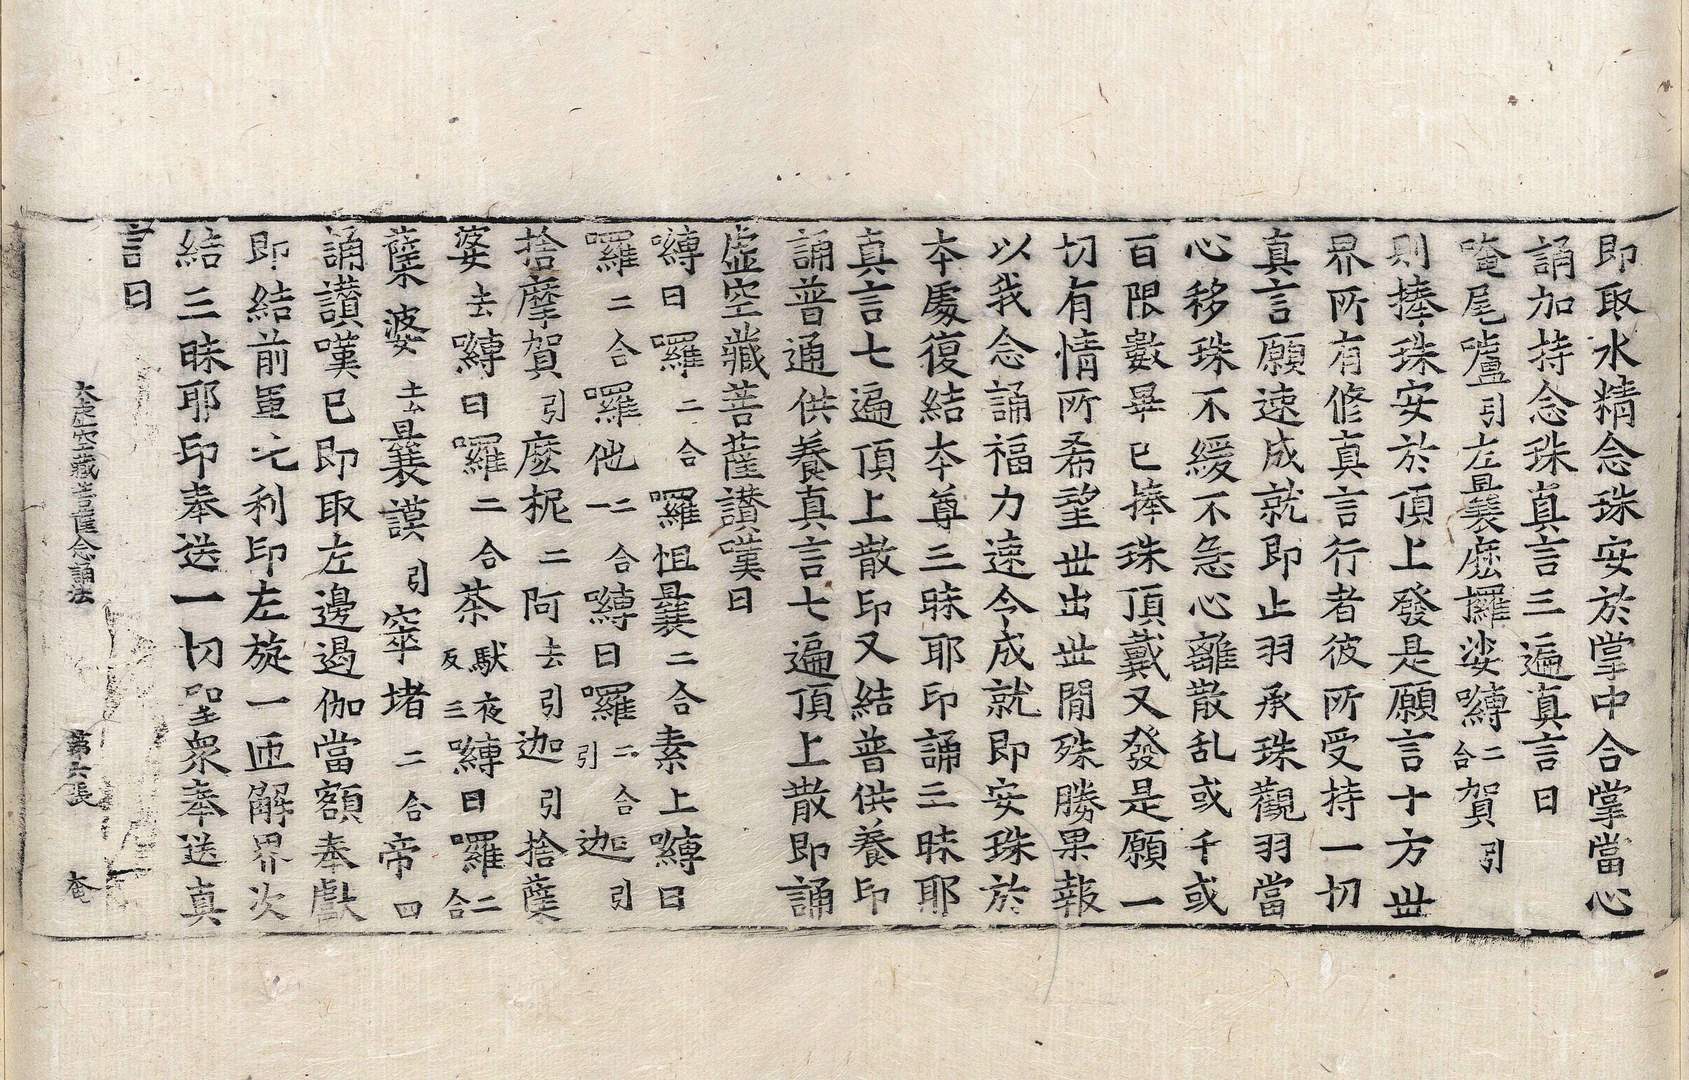 即取水精念珠安於掌中合掌當心
誦加持念珠真言三遍真言曰
唵尾嚧引左曩麽攞娑嚩二合賀引
則捧珠安於頂上發是願言十方世
界所有修真言行者彼所受持一切
真言願速成就即止羽承珠觀羽當
心移珠不緩不急心離散乱或千或
百限數畢已捧珠頂戴又發是願一
切有情所希望世出世間殊勝果報
以我念誦福力速令成就即安珠於
本處復結本尊三昧耶印誦三昧耶
真言七遍頂上散印又結普供養印
誦普通供養真言七遍頂上散即誦
虛空藏菩薩讚嘆曰
嚩日囉二合囉怛曩二合素上嚩日
囉二合囉他二合一嚩日囉二合引迦引
捨摩賀引麽柅二阿去引迦引捨蘖
婆去嚩日囉二合荼馱夜反三嚩日囉二合
蘖婆去曩謨引窣堵二合帝四
誦讃嘆已即取左邊遏伽當額奉獻
即結前軍吒利印左旋一匝解界次
結三昧耶印奉送一切聖衆奉送真
言曰
大虛空藏菩薩念誦法 第六張 奄